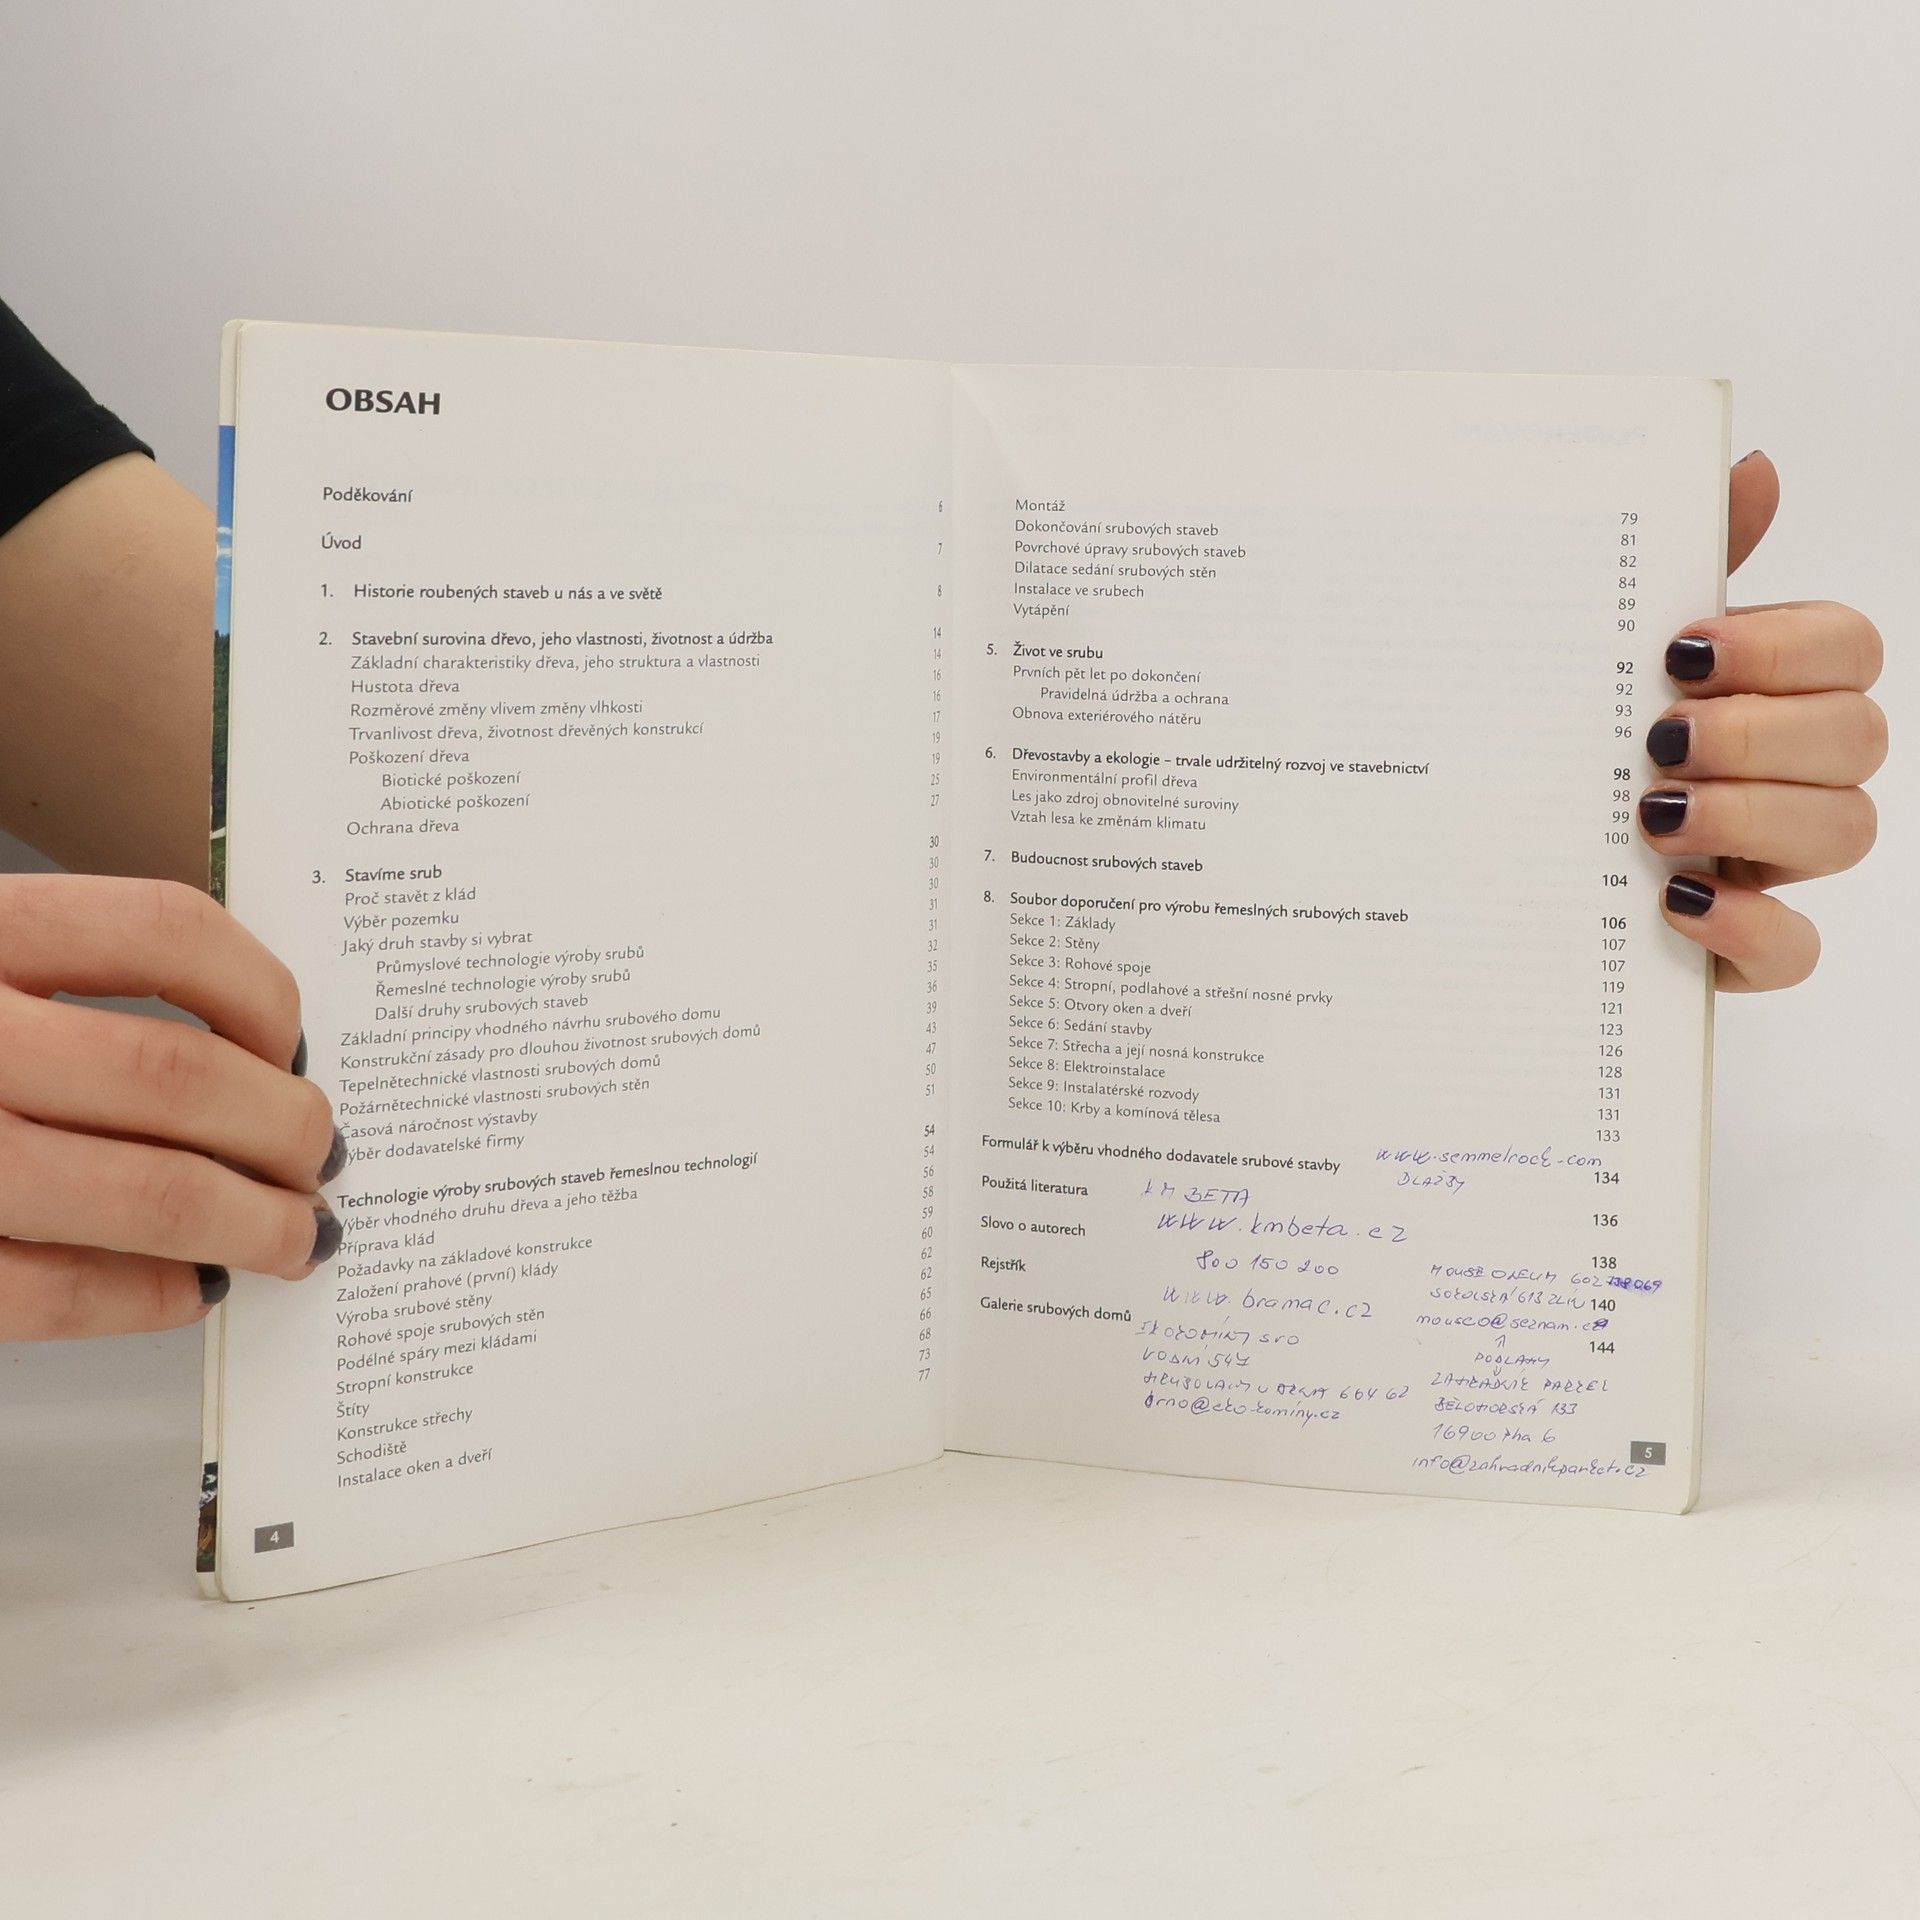 OBSAH
Poděkování 6
Úvod 7
1. Historie roubených staveb u nás a ve světě 8
2. Stavební surovina dřevo, jeho vlastnosti, životnost a údržba 14
Základní charakteristiky dřeva, jeho struktura a vlastnosti 14
Hustota dřeva 16
Rozměrové změny vlivem změny vlhkosti 16
Trvanlivost dřeva, životnost dřevěných konstrukcí 17
Poškození dřeva 19
Biotické poškození 19
Abiotické poškození 25
Ochrana dřeva 27
3. Stavíme srub 30
Proč stavět z klád 30
Výběr pozemku 30
Jaký druh stavby si vybrat 31
Průmyslové technologie výroby srubů 31
Řemeslné technologie výroby srubů 32
Další druhy srubových staveb 35
Základní principy vhodného návrhu srubového domu 36
Konstrukční zásady pro dlouhou životnost srubových domů 39
Tepelnětechnické vlastnosti srubových domů 43
Požárnětechnické vlastnosti srubových stěn 47
Časová náročnost výstavby 50
ýběr dodavatelské firmy 51
Technologie výroby srubových staveb řemeslnou technologií 54
ýběr vhodného druhu dřeva a jeho těžba 54
Příprava klád 56
Požadavky na základové konstrukce 58
Založení prahové (první) klády 59
Výroba srubové stěny 60
Rohové spoje srubových stěn 62
Podélné spáry mezi kládami 62
Stropní konstrukce 65
Štíty 66
Konstrukce střechy 68
Schodiště 73
Instalace oken a dveří 77
4
Montáž 79
Dokončování srubových staveb 81
Povrchové úpravy srubových staveb 82
Dilatace sedání srubových stěn 84
Instalace ve srubech 89
Vytápění 90
5. Život ve srubu 92
Prvních pět let po dokončení 92
Pravidelná údržba a ochrana 93
Obnova exteriérového nátěru 96
6. Dřevostavby a ekologie – trvale udržitelný rozvoj ve stavebnictví 98
Environmentální profil dřeva 98
Les jako zdroj obnovitelné suroviny 99
Vztah lesa ke změnám klimatu 100
7. Budoucnost srubových staveb 104
8. Soubor doporučení pro výrobu řemeslných srubových staveb 106
Sekce 1: Základy 107
Sekce 2: Stěny 107
Sekce 3: Rohové spoje 119
Sekce 4: Stropní, podlahové a střešní nosné prvky 121
Sekce 5: Otvory oken a dveří 123
Sekce 6: Sedání stavby 126
Sekce 7: Střecha a její nosná konstrukce 128
Sekce 8: Elektroinstalace 131
Sekce 9: Instalatérské rozvody 131
Sekce 10: Krby a komínová tělesa 133
Formulář k výběru vhodného dodavatele srubové stavby 134
Použitá literatura 136
Slovo o autorech 138
Rejstřík 140
Galerie srubových domů 144
www.semmelrock.com
DLAŽBY
KM BETA
www.kmbeta.cz
800 150 200
www.bramac.cz
EKOKOMÍNY SRO
VODNÍ 547
U BRNA 664 62
brno@eko-kominy.cz
PODLAHY
BĚLOHORSKÁ 133
16900 Pha 6
5